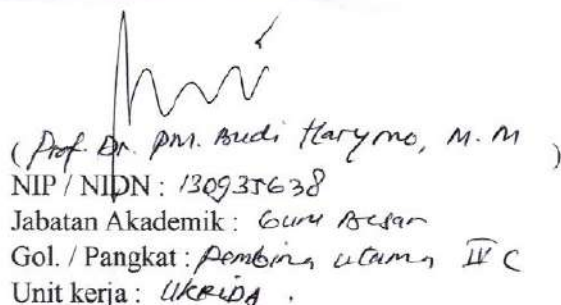 ( Prof. Dr. PM. Budi Haryono, M.M )
NIP / NIDN : 130935638
Jabatan Akademik : Guru Besar
Gol. / Pangkat : Pembina utama IV C
Unit kerja : UKRIDA .